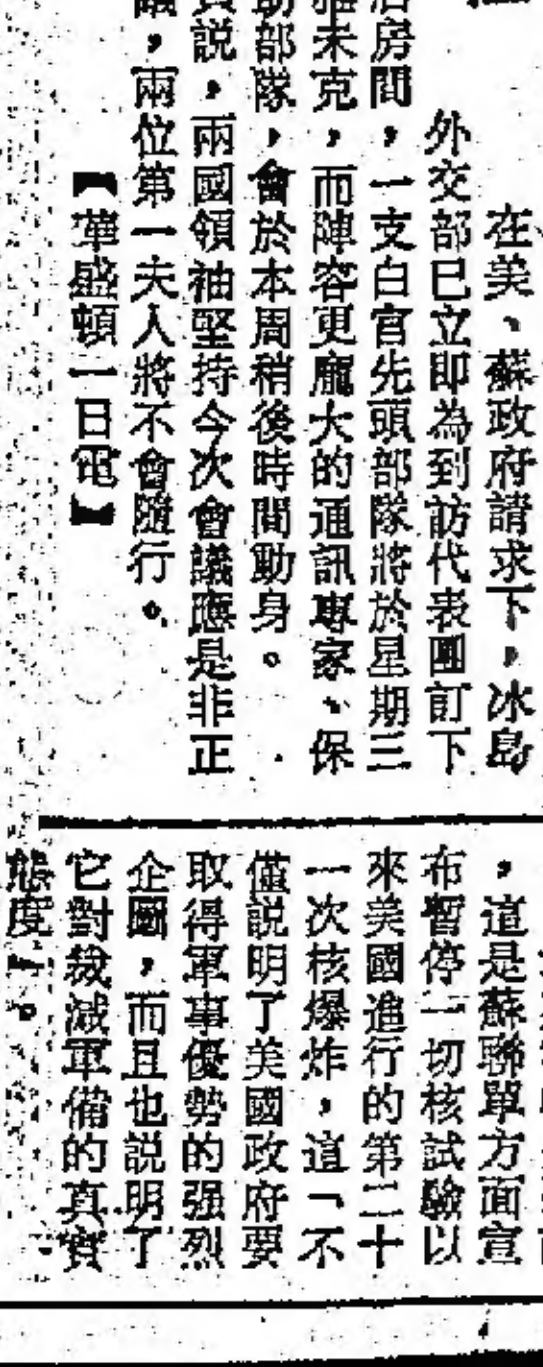 在美、蘇政府請求下，冰島
外交部已立即為到訪代表團訂下
房間，一支白宮先頭部隊將於星期三
未克，而陣容更龐大的通訊專家、保
部隊，會於本周稍後時間動身。
説，兩國領袖堅持今次會議應是非正
，兩位第一夫人將不會隨行。
【華盛頓一日電】
，這是蘇聯單方面宣
布暫停一切核試驗以
來美國進行的第二十
一次核爆炸，這「不
僅説明了美國政府要
取得軍事優勢的强烈
企圖，而且也説明了
它對裁減軍備的真實
態度」。